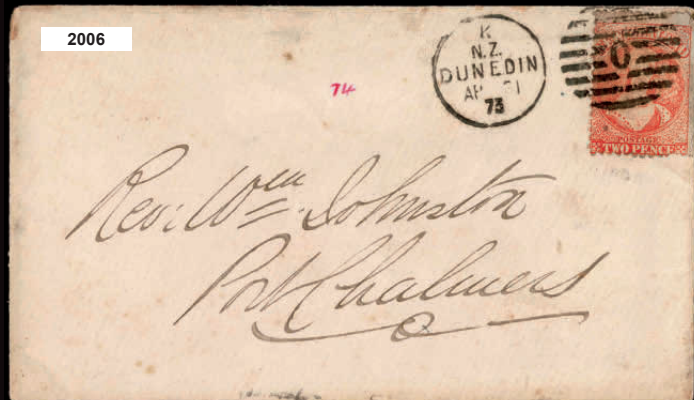 2006
74
K
N.Z.
DUNEDIN
AP 21
73
O
POSTAGE
TWO PENCE
Rev: Wm. Johnston
Port Chalmers